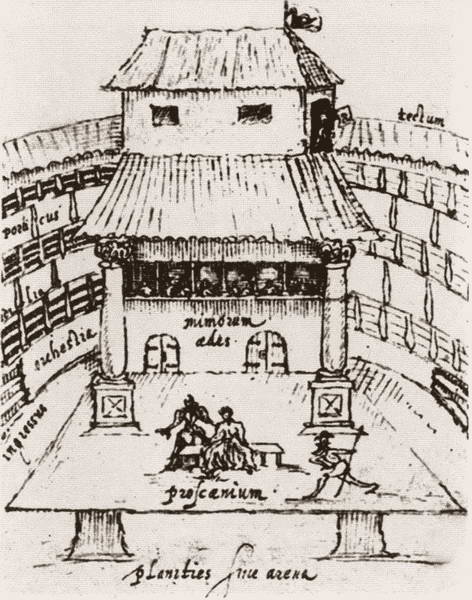 tectum
porticus
mimorum
ædes.
orchestra
ingressus
proscænium.
planities sive arena